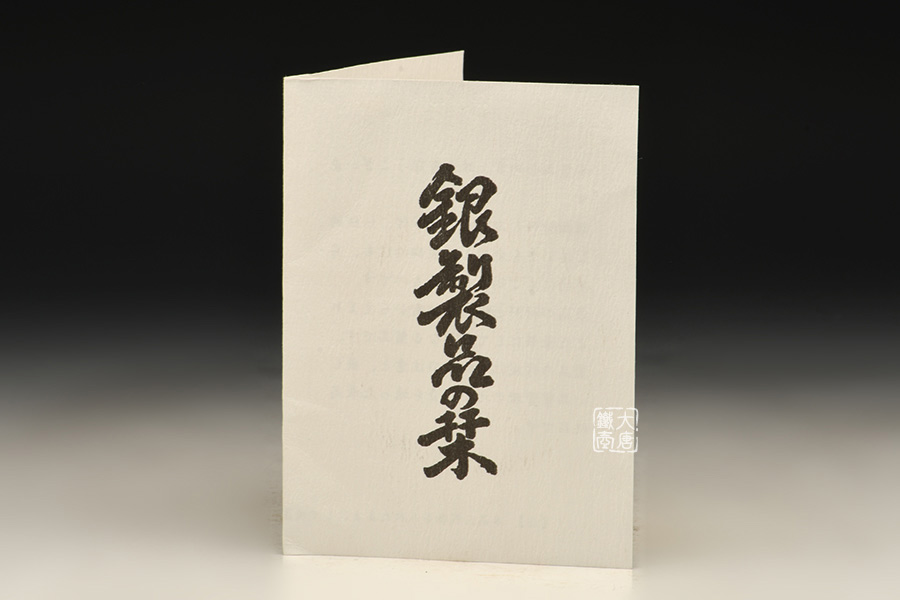 銀製品の栞
大唐
鐵壺